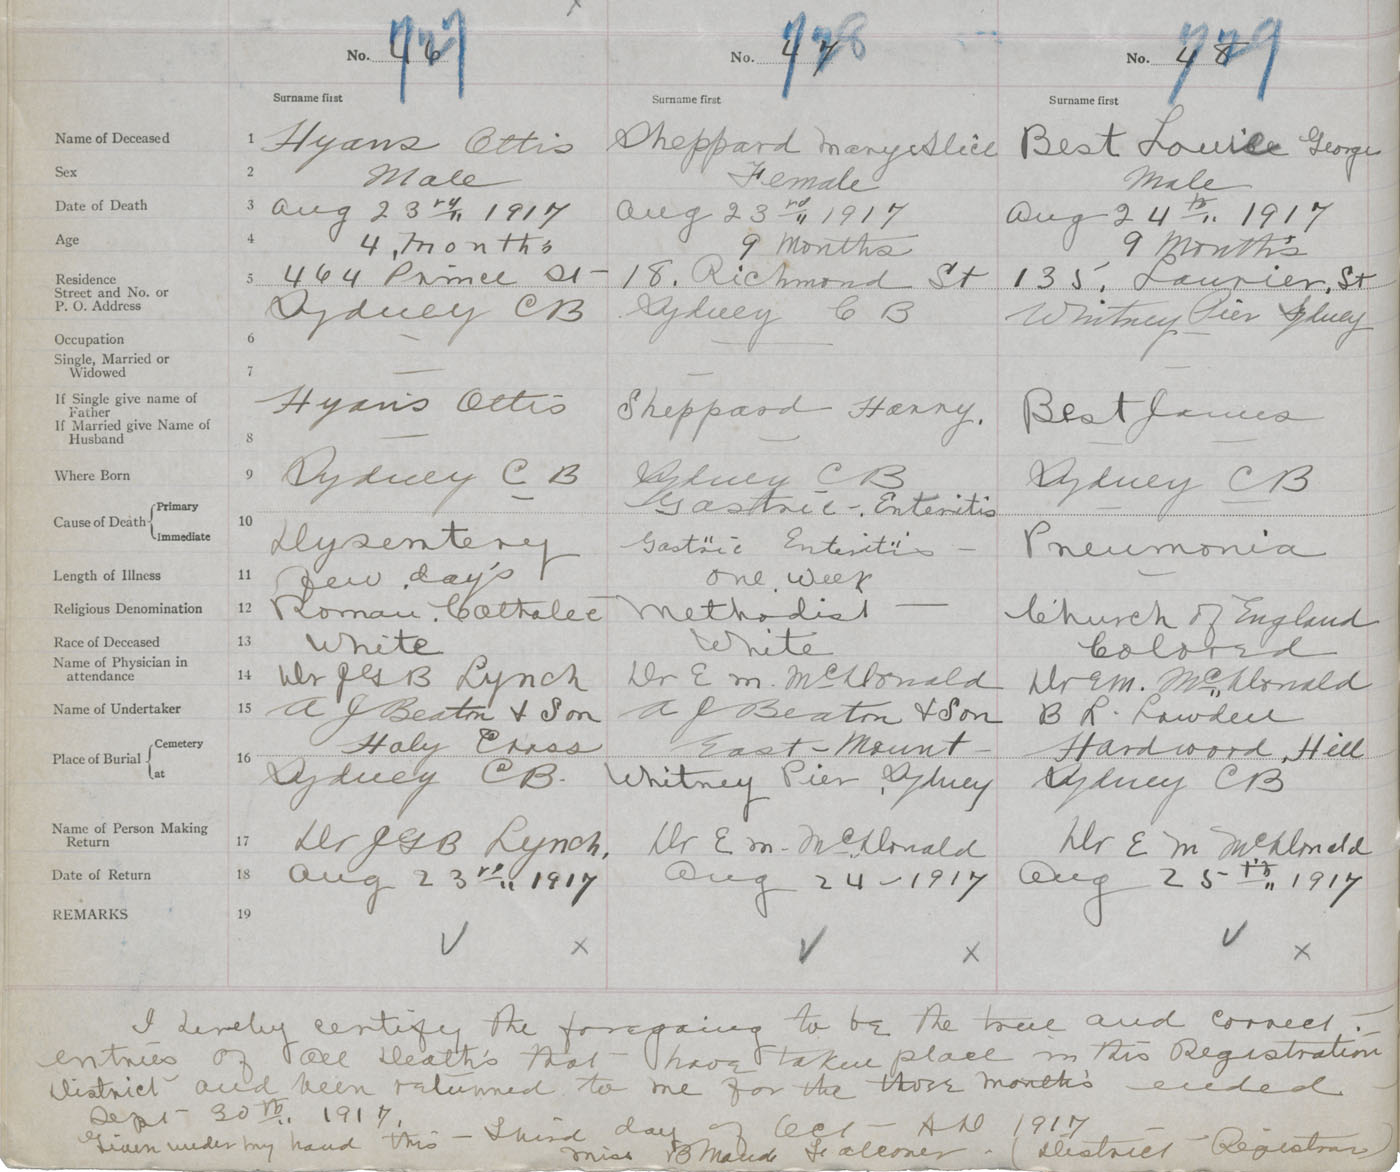 727 728 729
No. 46 No. 47 No. 48
Surname first Surname first Surname first
Name of Deceased 1 Hyans Ottis Sheppard Mary Alice Best Louise George
Sex 2 Male Female Male
Date of Death 3 Aug 23rd 1917 Aug 23rd 1917 Aug 24th 1917
Age 4 4 months 9 Months 9 Month's
Residence 5 464 Prince St 18. Richmond St 135, Laurier, St
Street and No. or
P. O. Address Sydney CB Sydney CB Whitney Pier Sydney
Occupation 6 — — —
Single, Married or
Widowed 7 — — —
If Single give name of
Father Hyans Ottis Sheppard Harry. Best James
If Married give Name of
Husband 8 — — — —
Where Born 9 Sydney CB Sydney CB Sydney CB
Cause of Death Primary 10 Gastric-Enteritis
Immediate Dysentery Gastric Enteritis — Pneumonia
Length of Illness 11 few day's one week —
Religious Denomination 12 Roman Catholic Methodist — Church of England
Race of Deceased 13 White White Colored
Name of Physician in
attendance 14 Dr JGB Lynch Dr E M. McDonald Dr EM. McDonald
Name of Undertaker 15 A J Beaton & Son A J Beaton & Son B L. Lowden
Place of Burial Cemetery 16 Holy Cross East-Mount- Hardwood, Hill
at Sydney CB. Whitney Pier, Sydney Sydney CB
Name of Person Making
Return 17 Dr JGB Lynch. Dr E M. McDonald Dr E M McDonald
Date of Return 18 Aug 23rd 1917 Aug 24-1917 Aug 25th 1917
REMARKS 19
√ x √ x √ x
I hereby certify the foregoing to be the true and correct.
entries of all Death's that have taken place in this Registration
District and been returned to me for the three Month's ended
Sept 30th 1917.
Given under my hand this — Third day of Oct — AD 1917
Miss B Maude Falconer. (District Registrar)